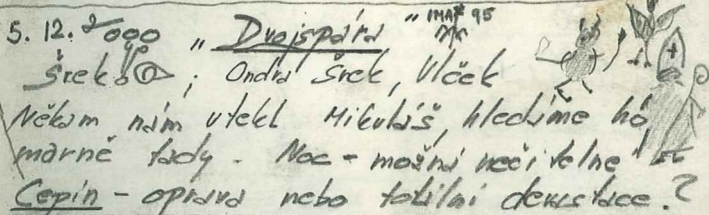 5. 12. 2000 „Dvojspára“ IMA* 95
Šrek ; Ondra Šrek, Vlček
Někam nám utekl Mikuláš, hledáme ho
marně tady. Noc - možná nečitelne!
Cepín - oprava nebo totální devastace?